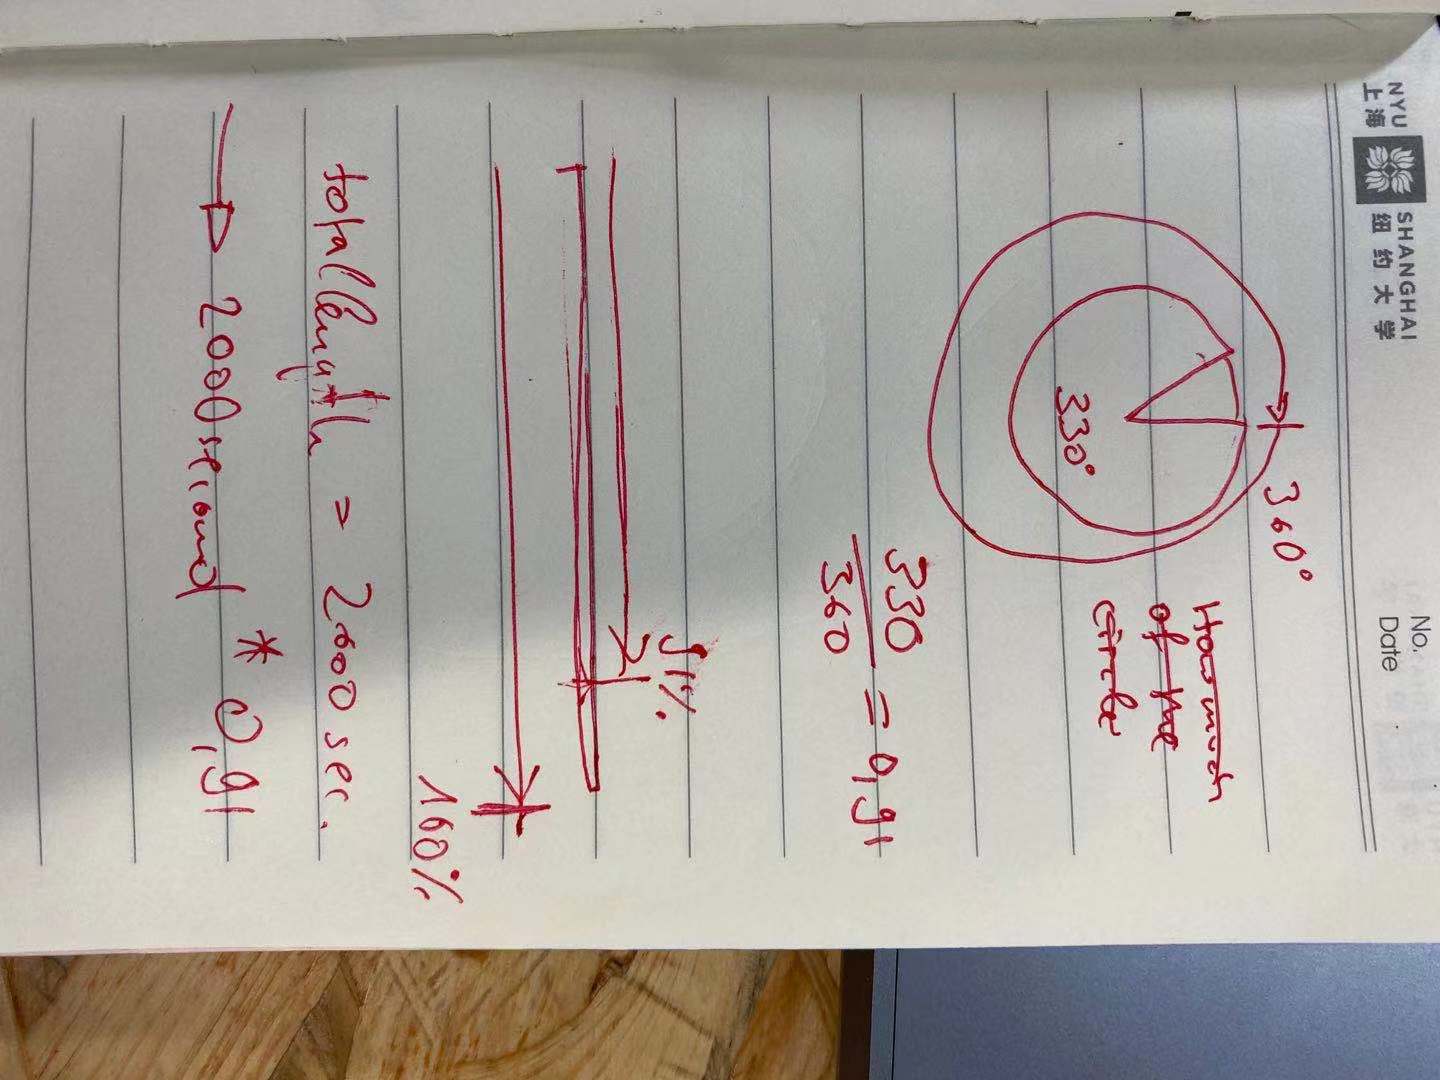 NYU SHANGHAI
上海 纽约大学
No.
Date
360°
330°
How much
of the
circle
330
360
= 0,91
91%
100%
total length = 2000 sec.
2000 second * 0,91